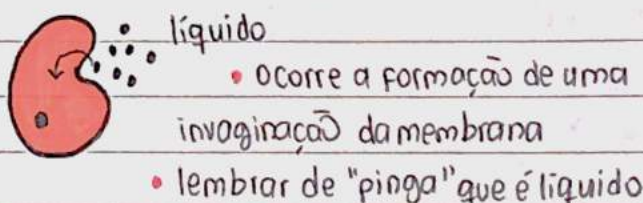 líquido
• ocorre a formação de uma
invaginação da membrana
• lembrar de "pinga" que é líquido